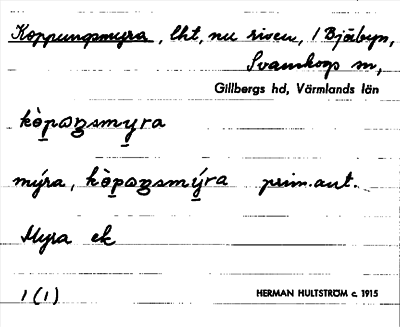 Koppungsmyra, lht, nu riven, i Bjärbyn,
Svanskogs sn,
Gillbergs hd, Värmlands län
kòpωŋsmyra
mýra, kòpωŋsmýra prim.ant.
Myra ek
1 (1)
HERMAN HULTSTRÖM c. 1915